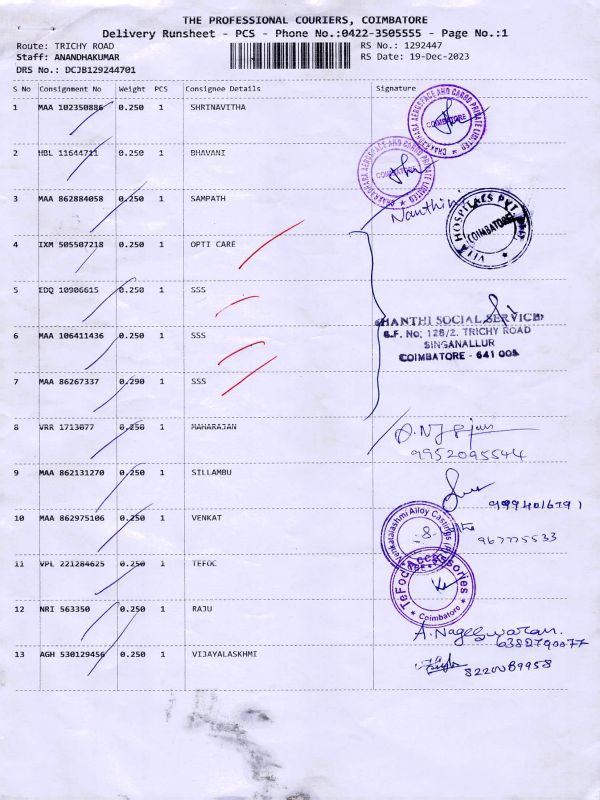 THE PROFESSIONAL COURIERS, COIMBATORE
Delivery Runsheet - PCS - Phone No.:0422-3505555 - Page No.:1
Route: TRICHY ROAD RS No.: 1292447
Staff: ANANDHAKUMAR RS Date: 19-Dec-2023
DRS No.: DCJB129244701
S No Consignment No Weight PCS Consignee Details Signature
1 MAA 102350886 0.250 1 SHRINAVITHA
COIMBATORE
2 HBL 11644711 0.250 1 BHAVANI
COIMBATORE
3 MAA 862884058 0.250 1 SAMPATH
Nanthini
COIMBATORE
4 IXM 505507218 0.250 1 OPTI CARE
5 EDQ 10906615 0.250 1 SSS
SHANTHI SOCIAL SERVICE
6 MAA 106411436 0.250 1 SSS
S.F. No; 128/2. TRICHY ROAD
SINGANALLUR
COIMBATORE - 641 005
7 MAA 86267337 0.290 1 SSS
8 VRR 1713077 0.250 1 MAHARAJAN
9952095544
9 MAA 862131270 0.250 1 SILLAMBU
10 MAA 862975106 0.250 1 VENKAT
Venkatalashmi Alloy Castings
11 VPL 221284625 0.250 1 TEFOC
TeFoc Accessories
Coimbatore
12 NRI 563350 0.250 1 RAJU
A. Nageswaran.
6382790077
13 AGH 530129456 0.250 1 VIJAYALASKHMI